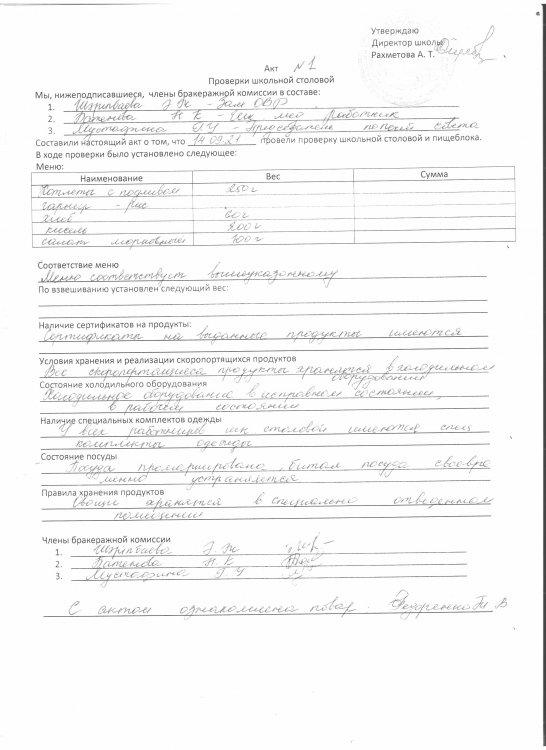 Утверждаю
Директор школы
Рахметова А. Т.
Акт №1
Проверки школьной столовой
Мы, нижеподписавшиеся, члены бракеражной комиссии в составе:
1. - Зам ОВР
2. Патенова Н К - шк мед работник
3. Мустафина - Председатель попеч совета
Составили настоящий акт о том, что 14.09.21 провели проверку школьной столовой и пищеблока.
В ходе проверки было установлено следующее:
Меню:
Наименование Вес Сумма
Котлеты с подливой 250 г
гарнир - рис
хлеб 60 г
кисель 200 г
салат морковный 100 г
Соответствие меню
Меню соответствует вышеуказанному
По взвешиванию установлен следующий вес:
Наличие сертификатов на продукты:
Сертификаты на выданные продукты имеются
Условия хранения и реализации скоропортящихся продуктов
Все скоропортящиеся продукты хранятся в холодильном
оборудовании
Состояние холодильного оборудования
Холодильное оборудование в исправном состоянии,
в рабочем состоянии
Наличие специальных комплектов одежды
У всех работников шк столовой имеются спец
комплекты одежды
Состояние посуды
Посуда промаркирована, битая посуда своевре
менно устраняется
Правила хранения продуктов
Овощи хранятся в специально отведенном
помещении
Члены бракеражной комиссии
1.
2. Патенова Н К
3. Мустафина
С актом ознакомлена повар. Федоренко В